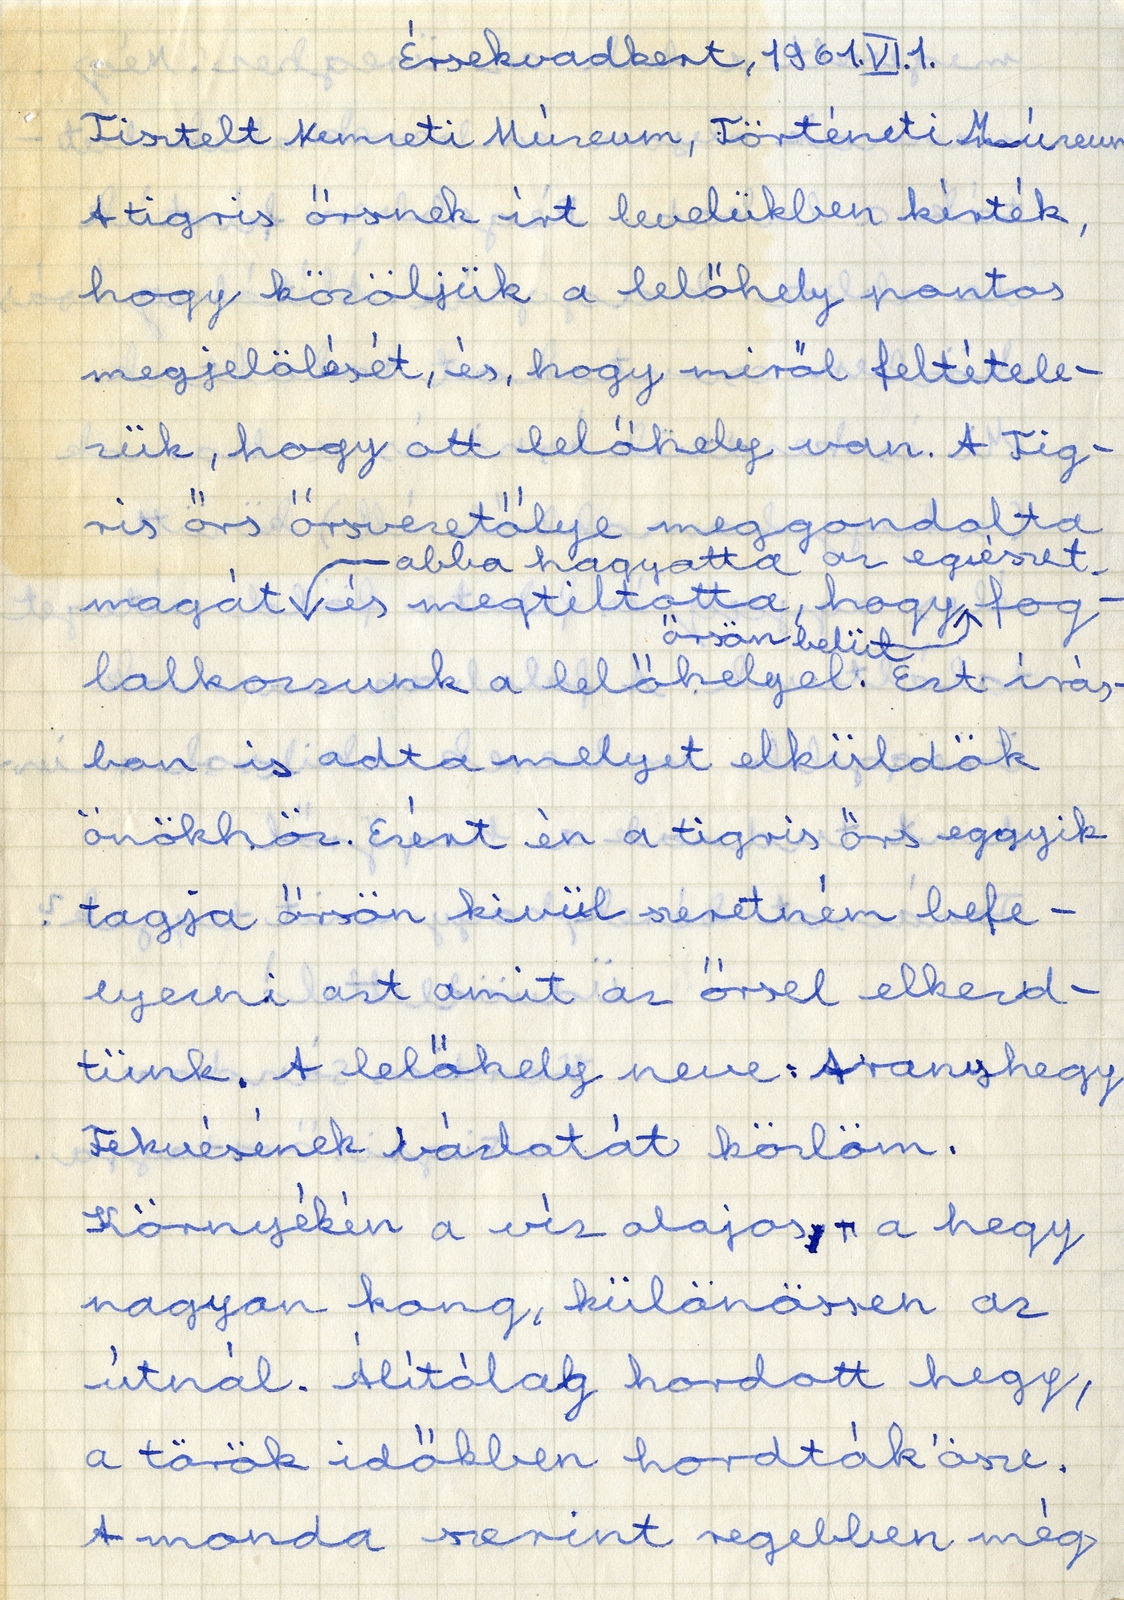 Érsekvadkert, 1961.VI.1.
Tisztelt Nemzeti Múzeum, Történeti Múzeum
A tigris őrsnek írt levelükben kérték,
hogy közöljük a lelőhely pontos
megjelölését, és, hogy miről feltétele-
zük, hogy ott lelőhely van. A Tig-
ris őrs őrsvezetőlye meggondolta
abba hagyatta az egészet.
magát és megtiltotta, hogy fog-
őrsön belül
lalkozzunk a lelőhelyel. Ezt írás-
ban is adta melyet elküldök
önökhöz. Ezért én a tigris őrs eggyik
tagja őrsön kivül szeretném befe-
lyezni azt amit az őrsel elkezd-
tünk. A lelőhely neve: Aranyhegy
Fekvésének vázlatát közlöm.
Környékén a víz olajos, a hegy
nagyon kong, különössen az
útnál. Álítólag hordott hegy,
a török időkben hordták össze.
A monda szerint regebben még